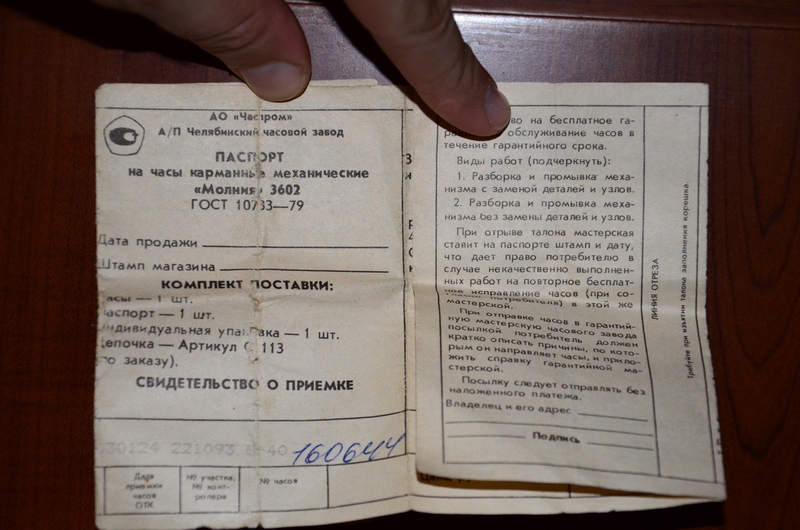 АО «Часпром»
А/П Челябинский часовой завод
ПАСПОРТ
на часы карманные механические
«Молния» 3602
ГОСТ 10733—79
Дата продажи
Штамп магазина
КОМПЛЕКТ ПОСТАВКИ:
часы — 1 шт.
паспорт — 1 шт.
индивидуальная упаковка — 1 шт.
цепочка — Артикул С 113
(по заказу).
СВИДЕТЕЛЬСТВО О ПРИЕМКЕ
221093
160644
Дата приемки часов ОТК
№ участка, № контролера
№ часов
во на бесплатное га-
обслуживание часов в
течение гарантийного срока.
Виды работ (подчеркнуть):
1. Разборка и промывка меха-
низма с заменой деталей и узлов.
2. Разборка и промывка меха-
низма без замены деталей и узлов.
При отрыве талона мастерская
ставит на паспорте штамп и дату,
что дает право потребителю в
случае некачественно выполнен-
ных работ на повторное бесплат-
ное исправление часов (при со-
потребителя) в этой же
мастерской.
При отправке часов в гарантий-
ную мастерскую часового завода
посылкой потребитель должен
кратко описать причины, по кото-
рым он направляет часы, и прило-
жить справку гарантийной ма-
стерской.
Посылку следует отправлять без
наложенного платежа.
Владелец и его адрес
Подпись
ЛИНИЯ ОТРЕЗА
Требуйте при изъятии талона заполнения корешка.